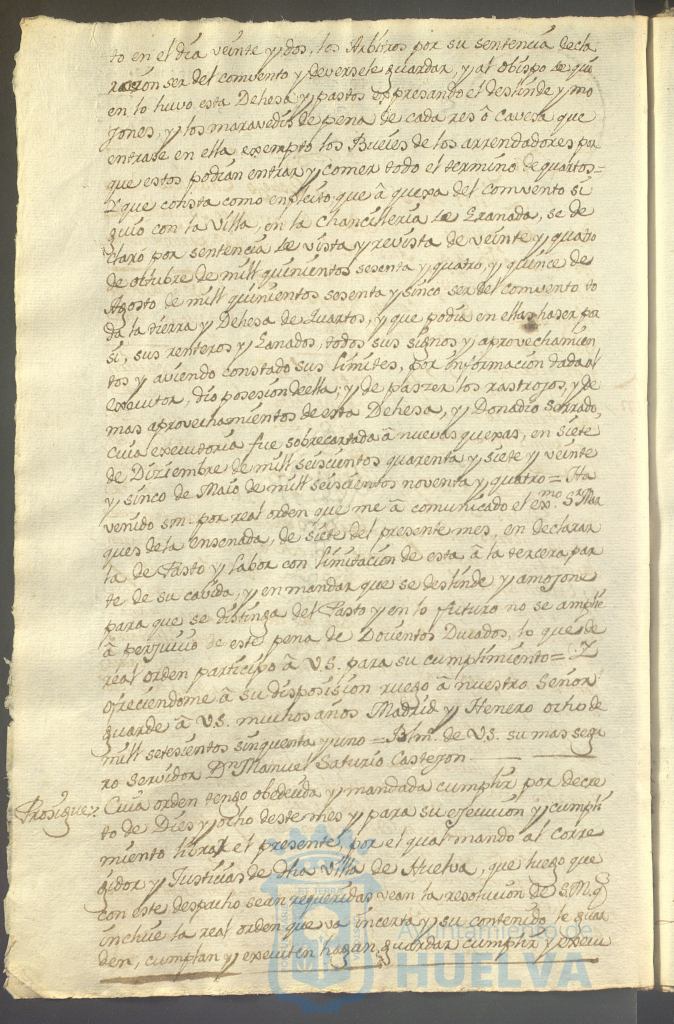 to en el dia veinte y dos, los Arbitros por su sentencia decla
raron ser del convento y deversele guardar, y al Obispo de qui
en lo huvo esta Dehesa y pastos expresando el deslinde y mo
jones, y los maravedis de pena de cada res ô cavesa que
entrase en ella exempto los Bueies de los arrendadores por
que estos podian entrar y comer todo el termino de quartos=
Y que consta como en pleito que â quexa del convento si
guio con la villa, en la Chancilleria de Granada, se de
claró por sentencia de vista y revista de veinte y quatro
de octubre de mill quinientos sesenta y quatro, y quince de
Agosto de mill quinientos sesenta y sinco ser del convento to
da la tierra y Dehesa de Quartos, y que podia en ellas haser por
si, sus renteros y Ganados, todos sus signos y aprovechamien
tos y aviendo constado sus limites, por informacion dada al
executor, dio posesion de ella; y de paszer los rastrojos, y de
mas aprovechamientos de esta Dehesa, y Donadio Serrado,
cuia executoria fue sobrecartada â nuevas quexas, en siete
de Diziembre de mill seiscientos quarenta y siete y veinte
y sinco de Maio de mill seiscientos noventa y quatro = Ha
venido S.M. por real orden que me â comunicado el ex.mo S.r Mar
ques de la Ensenada, de siete del presente mes, en declarar
la de Pasto y Labor con limitacion de esta â la tercera par
te de su cavida, y en mandar que se deslinde y amojone
para que se distinga del Pasto y en lo futuro no se amplie
â perjuicio de este pena de Docientos Ducados, lo que de
real orden participo â V.S. para su cumplimiento= Y
ofreciendome â su disposision ruego â nuestro Señor
guarde â V.S. muchos años Madrid y Henero ocho de
mill setesientos sinquenta y uno = B.l.m. de V.S. su mas segu
ro servidor D.n Manuel Saturio Castejon.
Prosigue. Cuia orden tengo obedecida y mandada cumplir por decre
to de Dies y ocho deste mes y para su ejecucion y cumpli
miento librar el presente, por el qual mando al Corre
gidor y Justicias de dha villa de Huelva, que luego que
con este despacho sean requeridas vean la resolucion de S.M. q.e
incluie la real orden que va incerta y su contenido le guar
den, cumplan y executen hagan guardar cumplir y execu
Ayuntamiento de
HUELVA